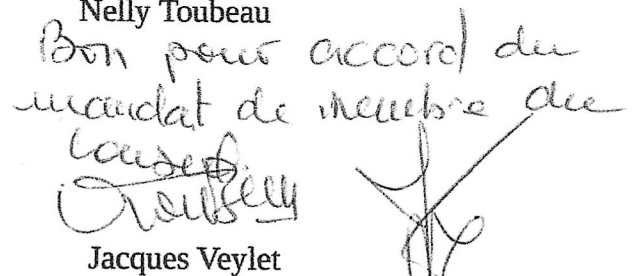 Nelly Toubeau
Bon pour accord du
mandat de membre du
Conseil
Jacques Veylet